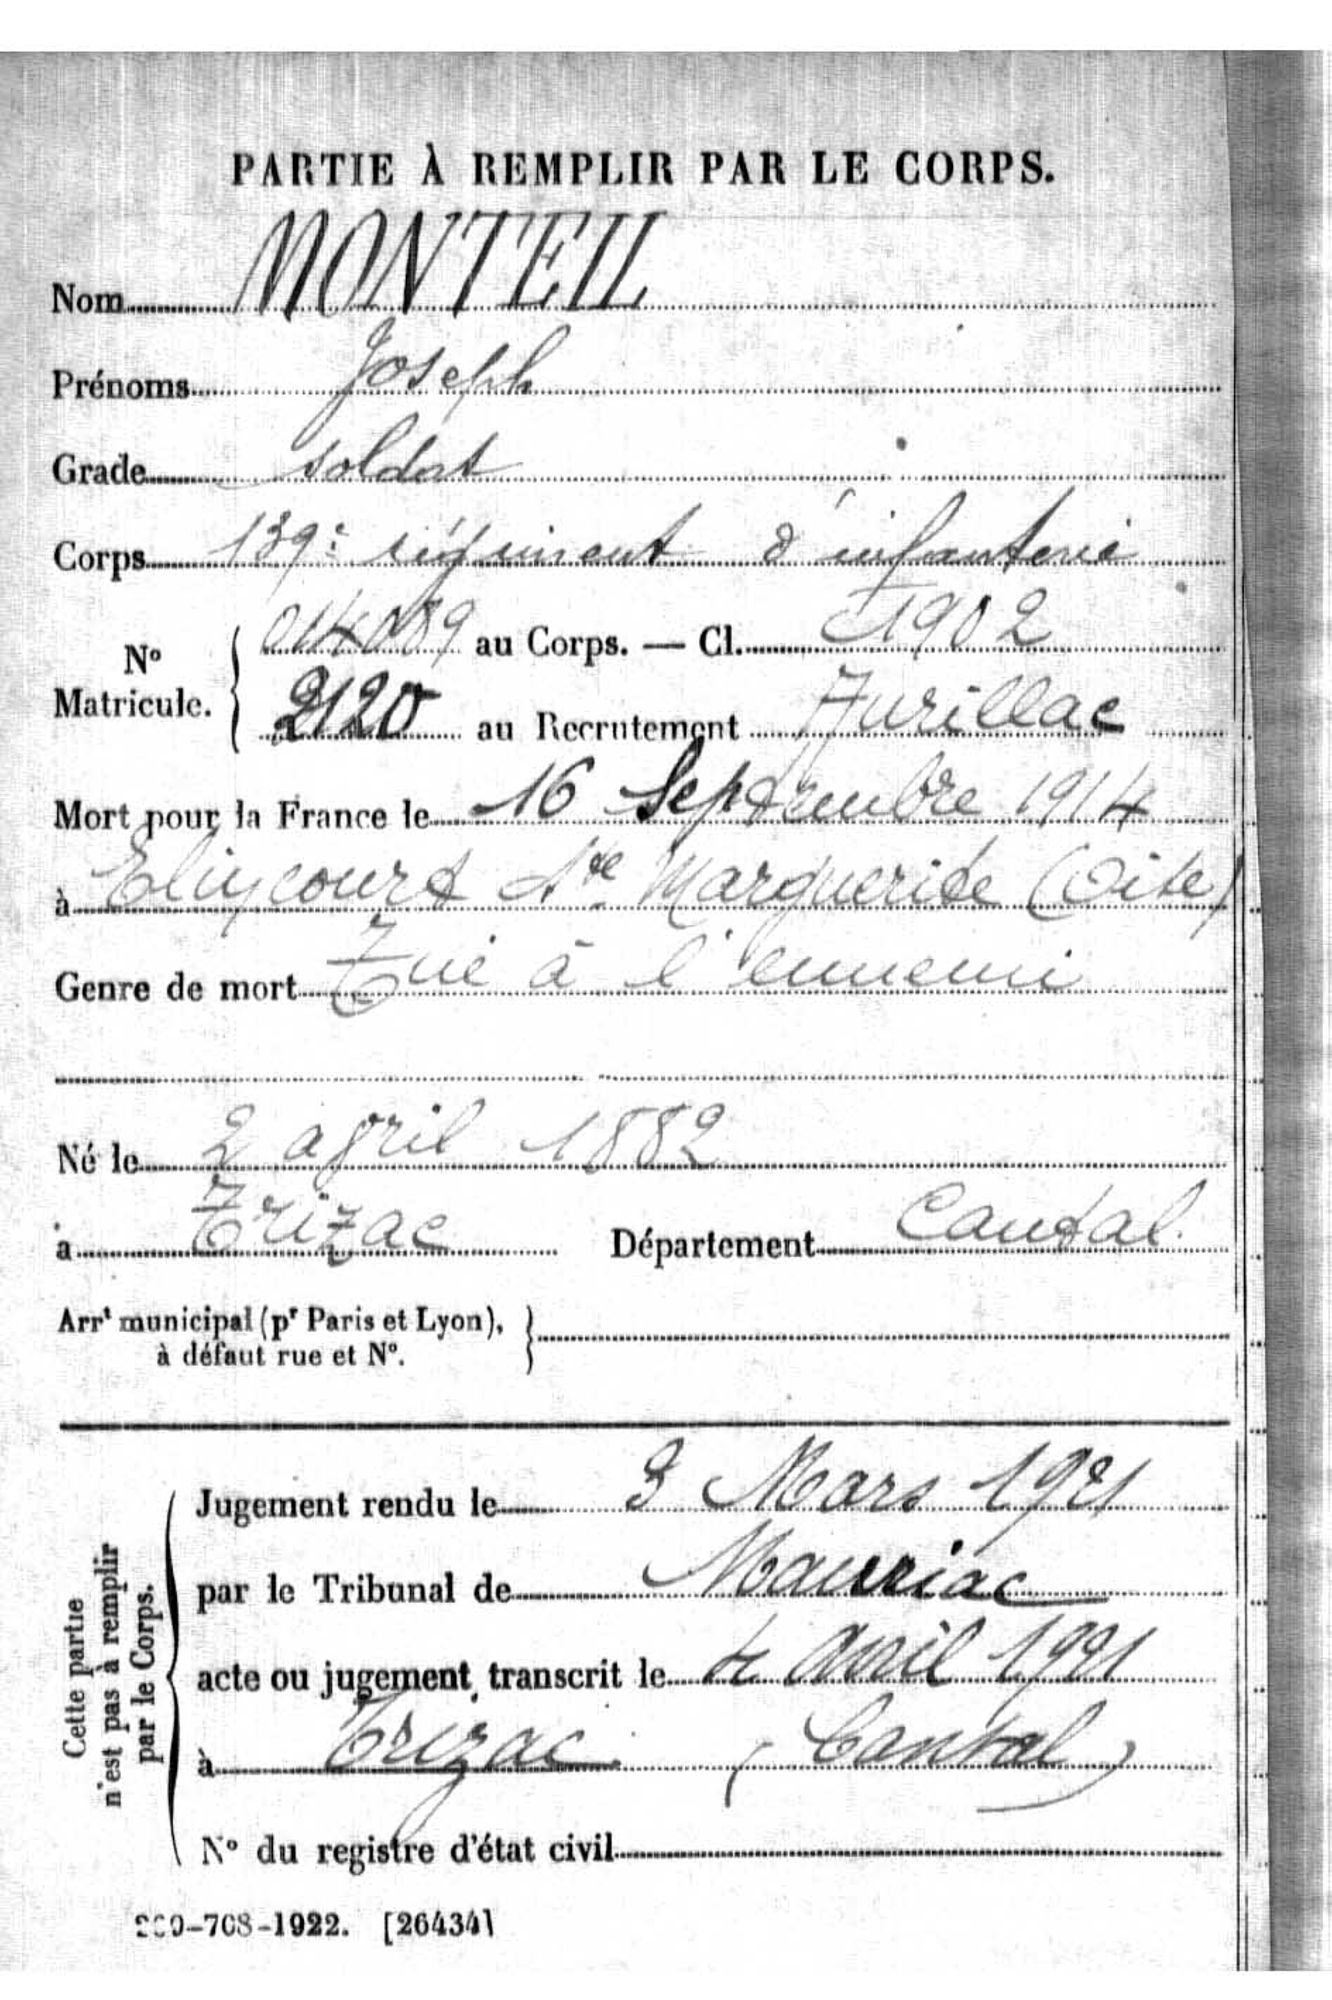 PARTIE À REMPLIR PAR LE CORPS.
Nom MONTEIL
Prénoms Joseph
Grade soldat
Corps 139e régiment d'infanterie
No Matricule. { 014089 au Corps. — Cl. 1902
2120 au Recrutement Aurillac
Mort pour la France le 16 Septembre 1914
à Elincourt Ste Marguerite (Oise)
Genre de mort Tué à l'ennemi
Né le 2 avril 1882
à Trizac Département Cantal
Arrt municipal (pr Paris et Lyon), à défaut rue et No. }
Cette partie n'est pas à remplir par le Corps.
Jugement rendu le 3 Mars 1921
par le Tribunal de Mauriac
acte ou jugement transcrit le 4 avril 1921
à Trizac (Cantal)
No du registre d'état civil
-708-1922. [26434]